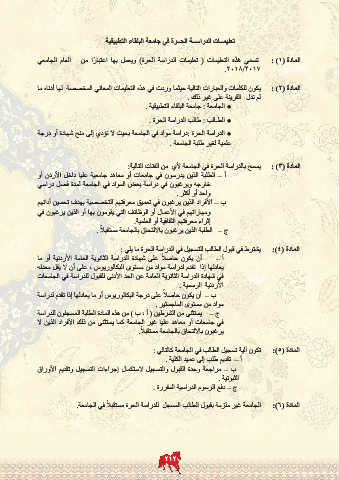 تعليمات الدراسة الحرة في جامعة البلقاء التطبيقية
المادة (١): تسمى هذه التعليمات ( تعليمات الدراسة الحرة) ويعمل بها اعتبارًا من العام الجامعي
٢٠١٨/٢٠١٧.
المادة (٢): يكون للكلمات والعبارات التالية حيثما وردت في هذه التعليمات المعاني المخصصة لها أدناه ما
لم تدل القرينة على غير ذلك .
● الجامعة : جامعة البلقاء التطبيقية .
● الطالب : طالب الدراسة الحرة .
● الدراسة الحرة :دراسة مواد في الجامعة بحيث لا تؤدي إلى منح شهادة أو درجة
علمية لغير طلبة الجامعة .
المادة (٣): يسمح بالدراسة الحرة في الجامعة لأي من الفئات التالية:
أ – الطلبة الذين يدرسون في جامعات أو معاهد جامعية عليا داخل الأردن أو
خارجه ويرغبون في دراسة بعض المواد في الجامعة لمدة فصل دراسي
واحد أو أكثر .
ب – الأفراد الذين يرغبون في تعميق معرفتهم التخصصية بهدف تحسين أدائهم
ومهاراتهم في الأعمال أو الوظائف التي يقومون بها أو الذين يرغبون في
إثراء معرفتهم الثقافية أو العلمية.
ج – الطلبة الذين يرغبون بالالتحاق بالجامعة مستقبلاً .
المادة (٤): يشترط في قبول الطالب للتسجيل في الدراسة الحرة ما يلي :
أ – أن يكون حاصلاً على شهادة الدراسة الثانوية العامة الأردنية أو ما
يعادلها إذا تقدم لدراسة مواد من مستوى البكالوريوس ، على أن لا يقل معدله
في شهادة الدراسة الثانوية العامة عن الحد الأدنى للقبول للدراسة في الجامعات
الأردنية الرسمية .
ب – أن يكون حاصلاً على درجة البكالوريوس أو ما يعادلها إذا تقدم لدراسة
مواد من مستوى الماجستير .
ج – يستثنى من الشرطين ( أ ، ب ) من هذه المادة الطلبة المسجلون للدراسة
في جامعات أو معاهد عليا غير الجامعة كما يستثنى من ذلك الأفراد الذين لا
يرغبون بالالتحاق بالجامعة مستقبلاً.
المادة (٥): تكون آلية تسجيل الطالب في الجامعة كالتالي :
أ – تقديم طلب إلى عميد الكلية .
ب – مراجعة وحدة القبول والتسجيل لاستكمال إجراءات التسجيل وتقديم الأوراق
الثبوتية .
ج – دفع الرسوم الدراسية المقررة .
المادة (٦): الجامعة غير ملزمة بقبول الطالب المسجل للدراسة الحرة مستقبلاً في الجامعة.
٢١٢